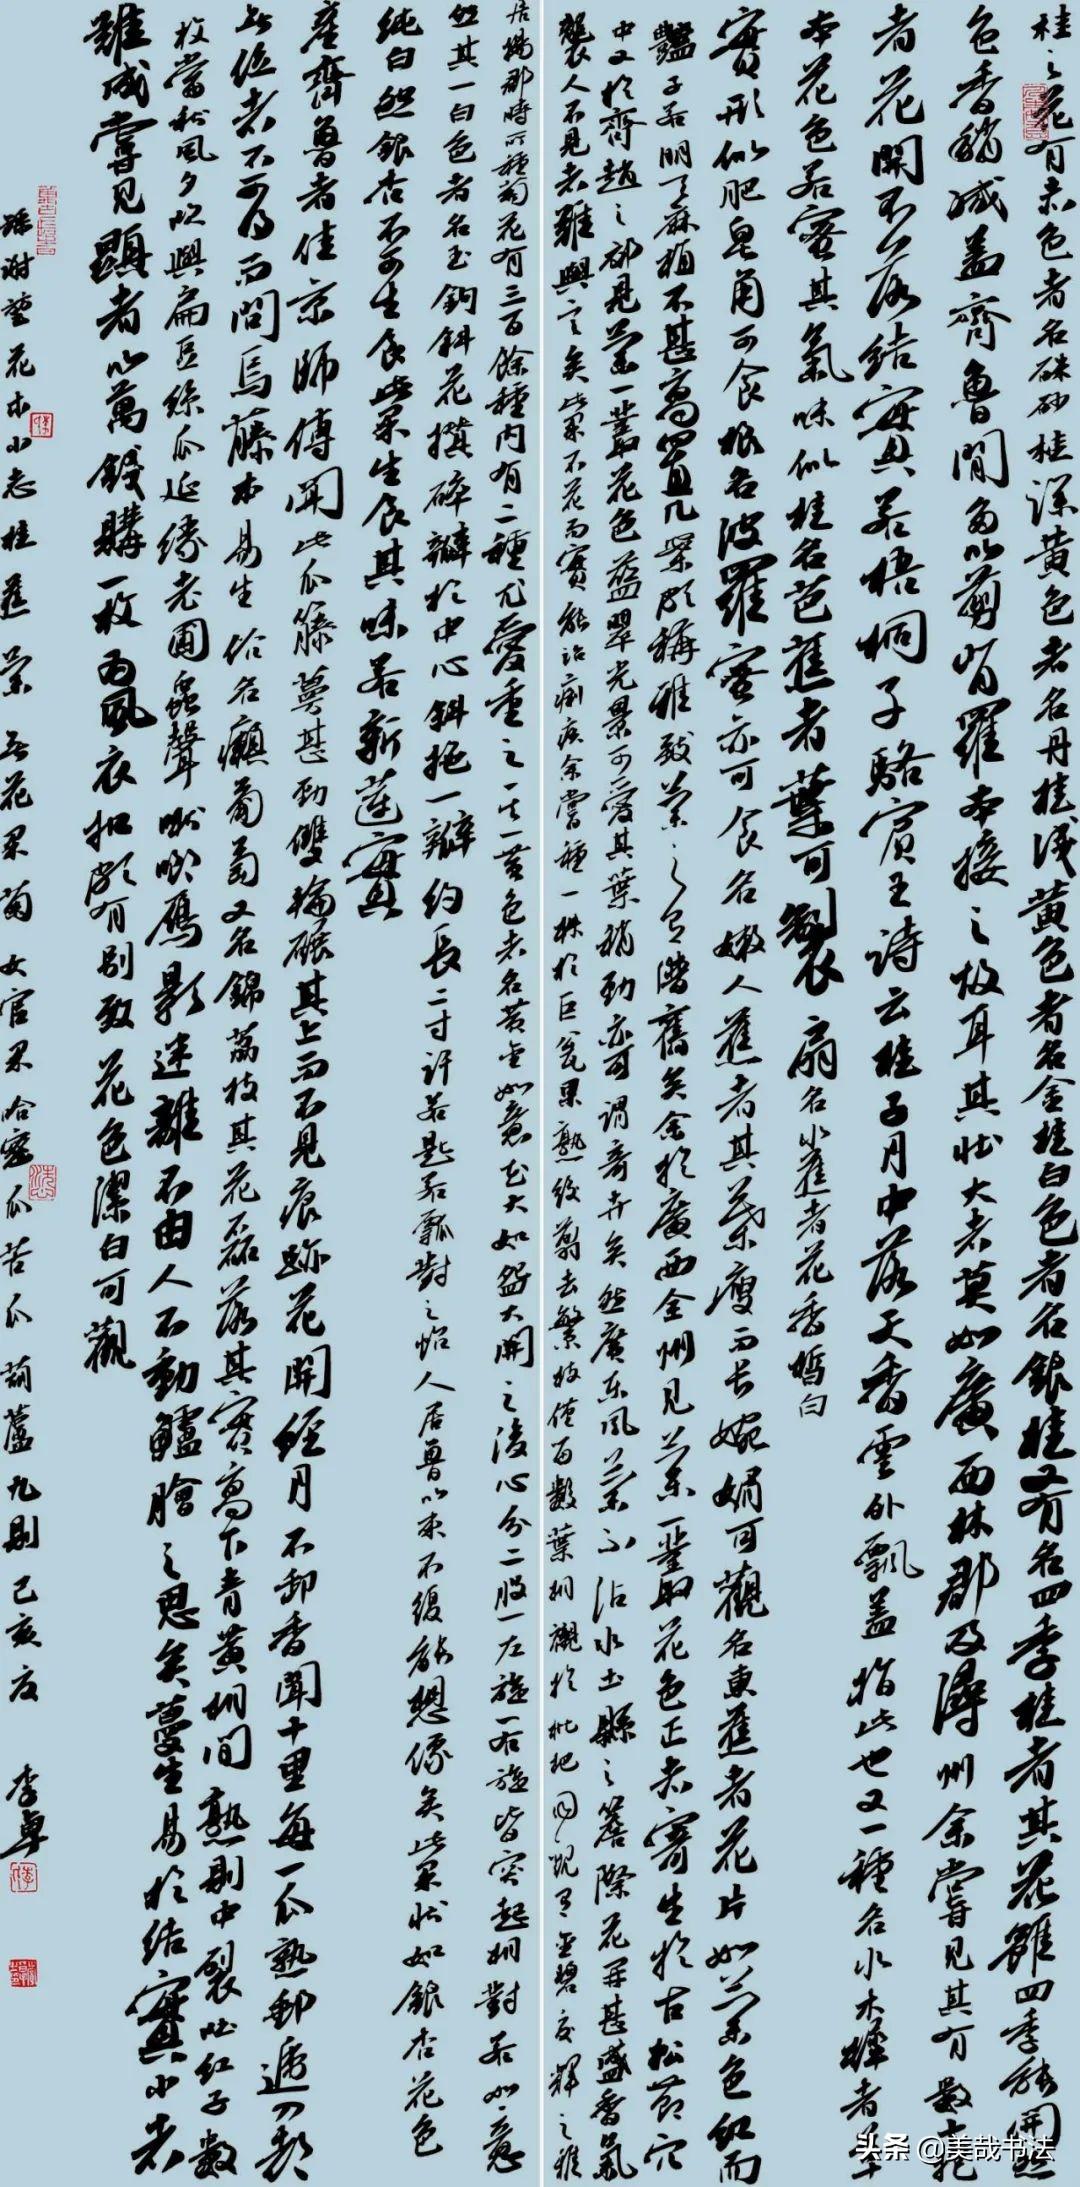 桂之花有朱色者名硃砂桂深黄色者名丹桂浅黄色者名金桂白色者名銀桂又有名四季桂者其花雖四季能開然
色香稍减盖齊魯間多以剪皆羅本接之故耳其壮大者莫如廣西林郡及潯州余嘗見其有數十抱
者花開不落結實若梧桐子駱賓王詩云桂子月中落天香雲外飄盖指此也又一種名水木樨者草
本花色若蜜其氣味似桂名芭蕉者葉可製扇名小蕉者花香皙白
實形似肥皂角可食根名波羅蜜亦可食名嫩人蕉者其葉瘦而长婉娟可觀名東蕉者花片如蘭色紅而
豔子若明天麻植不甚高置几案頗稱雅致蘭之名湮舊矣余於廣西全州見蘭一叢花色正赤寄生於古松節穴
中又於齊趙之郊見蘭一叢花色藍翠光景可愛其葉稍勁亦可謂奇卉矣然廣东風蘭不沾水土懸之簷際花开甚盛香氣
襲人不見者難與言矣此果不花而實能治痢疾余嘗種一株於巨瓮果熟後剪去繁枝僅留數葉相襯於枇杷間觀之金碧交輝之雅
居揚郡時所種菊花有三百餘種内有二種尤爱重之其一黄色者名黄金如意花大如盌大開之後心分二股一左旋一右旋皆突起相對若如意
然其一白色者名玉鉤斜花攢碎瓣於中心斜拖一瓣约長二寸许若匙若瓢對之怡人居魯以来不復能想像矣此果状如銀杏花色
纯白然銀杏不可生食此果生食其味若新蓮實
產齊魯者佳京師傳聞此瓜籐蔓甚勁雙輪碾其上而不見痕跡花開經月不卸香聞十里每一瓜熟郵遞入都
無位者不可得而問焉藤本易生俗名癩葡萄又名錦荔枝其花磊落其實高下青黄相間熟則中裂吐红子數
枚當秋風夕吹與扁豆絲瓜延缘老圃蟲聲啾唧鴈影迷離不由人不動鱸膾之思矣蔓生易於结實小者
難成嘗見顕者以萬錢購一枚為風衣扣頗有别致花色潔白可觀
謝堃花木小志桂蕉蘭無花果菊女官果哈密瓜苦瓜葫蘆九則己亥夏 李卓
头条 @美哉书法